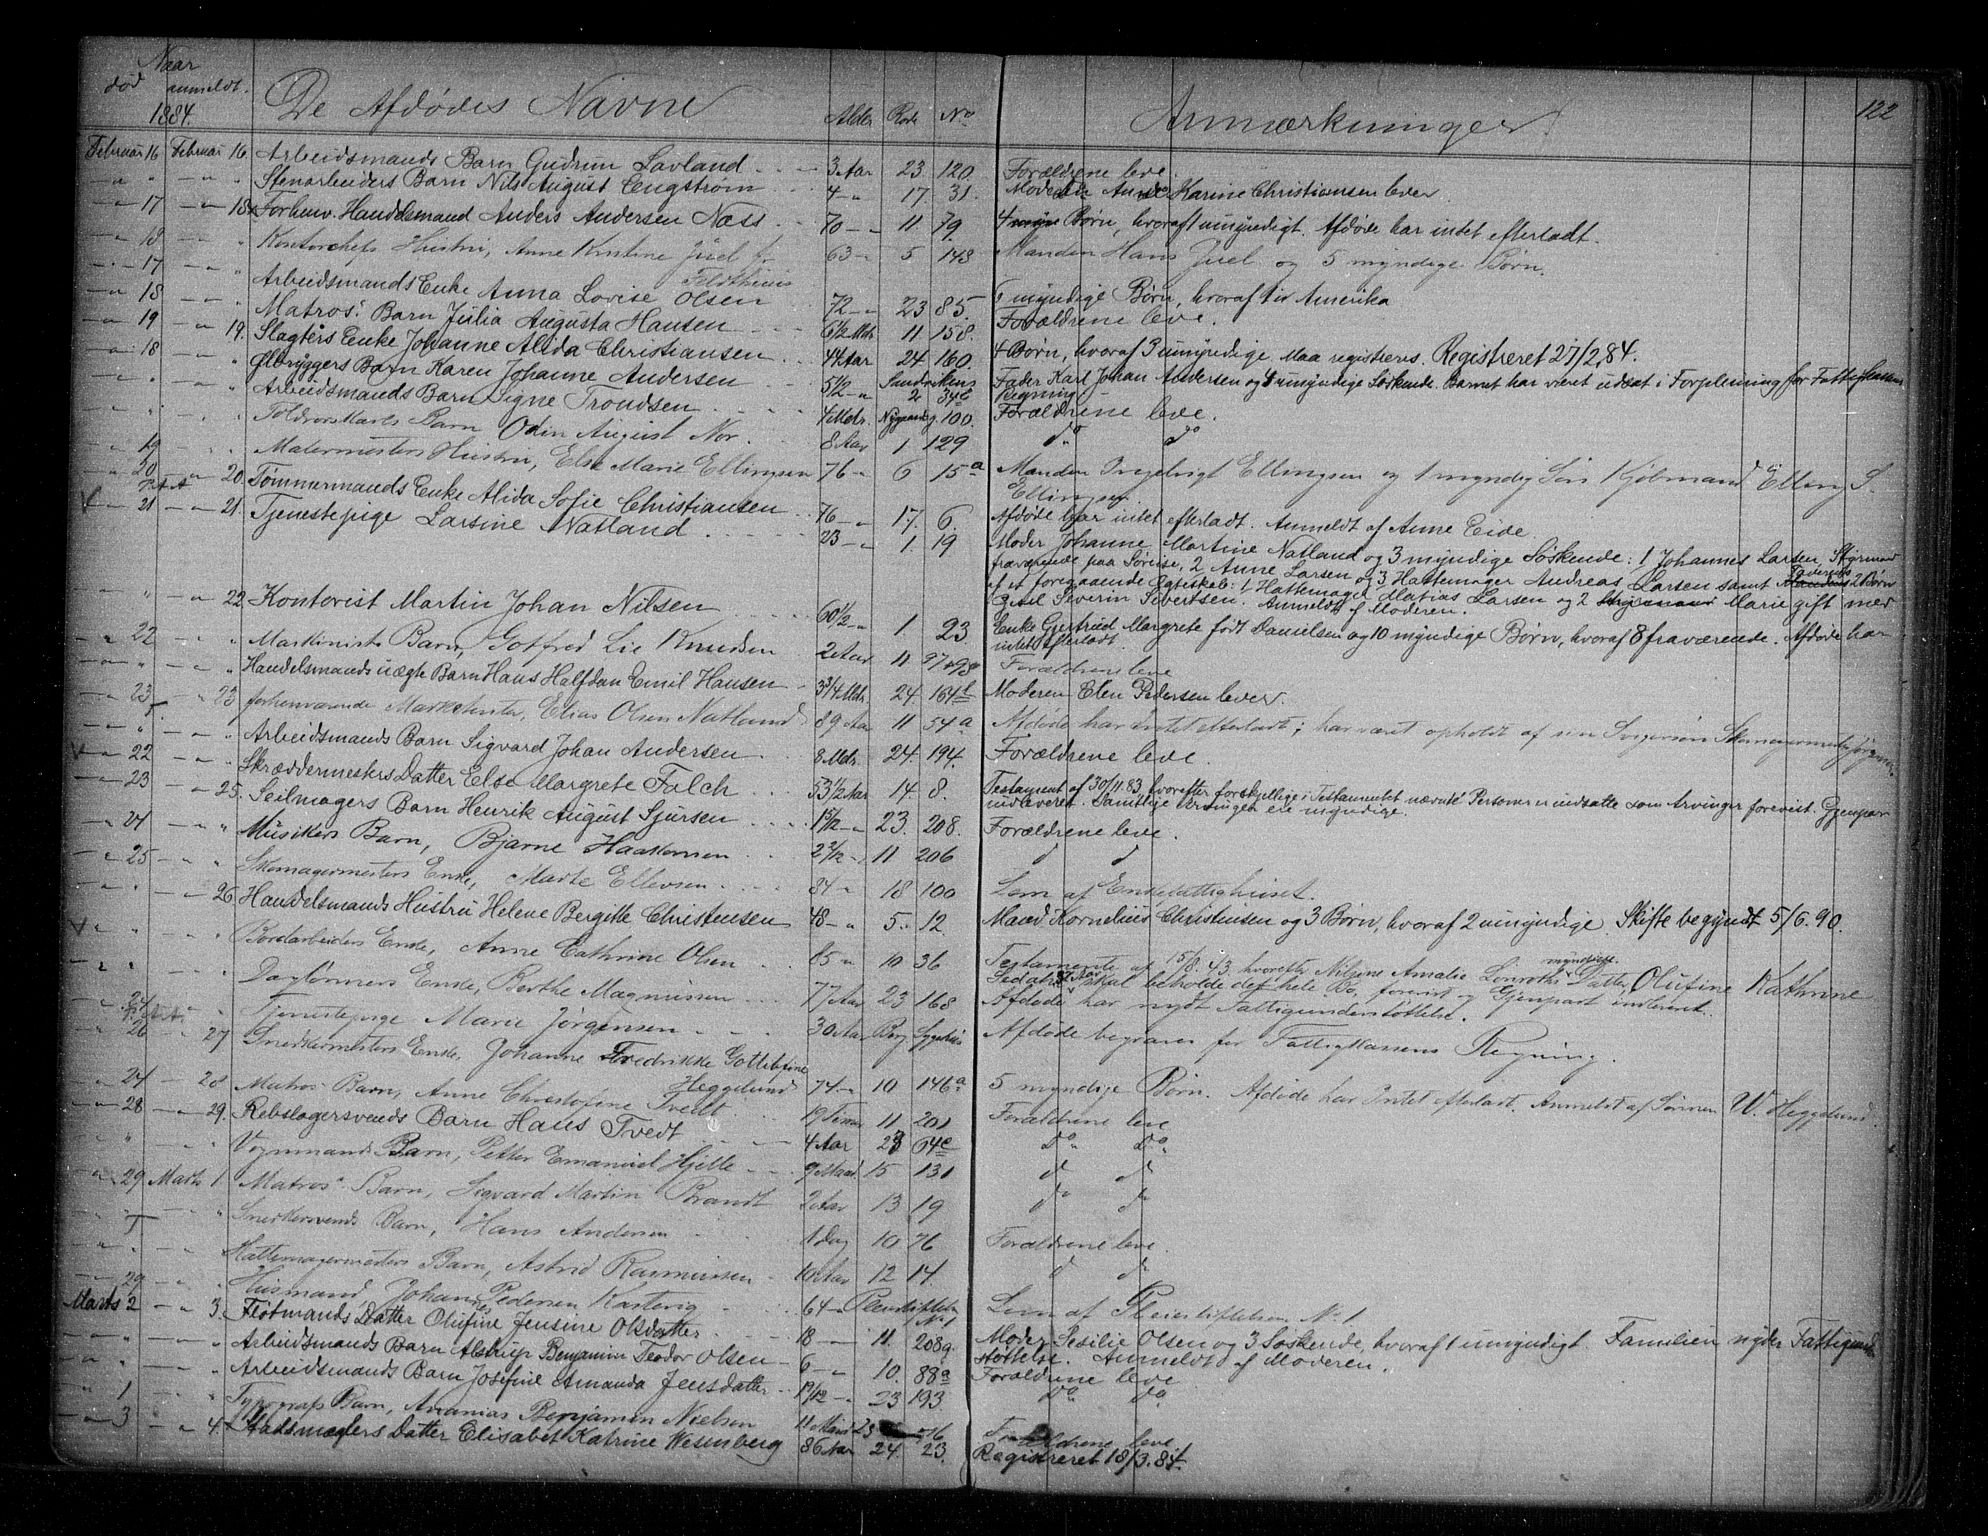 Naar
død anmeldt.
1884. De Afdødes Navne Alder Rode No Anmærkninger. 122
Februar 16 Februar 16. Arbeidsmands Barn Gudrun Lavland 3 Aar 23 120. Forældrene leve.
" " Stenarbeiders Barn Nils August Engstrøm 4 " 17 31. Moderen Anne Karine Christiansen lever.
" 17 " 18. Forhenv. Handelsmand Anders Andersen Næss 70 " 11 79. 4 Børn, hvoraf 1 umyndigt. Afdøde har intet efterladt.
" 18 " Kontorchefs Hustru, Anne Kristine Juel f. 63 " 5 143 Manden Hans Juel og 5 myndige Børn.
Feldthuus
" 17 " Arbeidsmands Enke Anna Lovise Olsen 72 " 23 85. 6 myndige Børn, hvoraf 1 i Amerika
" 18 " Matros' Barn Julia Augusta Hansen 6 1/2 Mdr. 11 158. Forældrene leve.
" 19 " 19. Slagters Enke Johanne Alida Christiansen 44 Aar 24 160. 4 Børn, hvoraf 3 umyndige. Maa registreres. Registreret 27/2.84.
" 18 " Ølbryggers Barn Karen Johanne Andersen 5 1/2 " Sandvikens 2 34b Fader Karl Johan Andersen og 4 umyndige Søskende. Barnet har været udsat i Forpleining for Fattigkassens
Regning
" " Arbeidsmands Barn Signe Trondsen 4 Mdr. Nygaardsg. 100. Forældrene leve.
" " Toldrorskarls Barn Odin August Nor. 8 Aar 1 129 do do
" 19 " Malermesters Hustru, Else Marie Ellingsen 76 " 6 15a Manden Ingebrigt Ellingsen og 1 myndig Søn Kjøbmand Elling S.
Ellingsen.
" 20 " 20. Tømmermands Enke Alida Sofie Christiansen 76 " 17. 6. Afdøde har intet efterladt. Anmeldt af Anne Eide.
" 21 " 21. Tjenestepige Larsine Natland 23 " 1. 19 Moder Johanne Martine Natland og 3 myndige Søskende: 1 Johannes Larsen, Styrmand
fraværende paa Søreise, 2 Anne Larsen og 3 Hattemager Andreas Larsen samt 2 Børn
af et foregaaende Ægteskab: 1 Hattemager Matias Larsen og 2 Marie gift med
Severin Sivertsen. Anmeldt af Moderen.
" " 22. Kontorist Martin Johan Nilsen 60 1/2 " 1 23 Enke Gjertrud Margrete født Danielsen og 10 myndige Børn, hvoraf 8 fraværende. Afdøde har
intet efterladt.
" 22 " Maskinists Barn, Gotfred Lie Knudsen 2 Aar 11 97 & 98 Forældrene leve
" " Handelsmands uægte Barn Hans Halfdan Emil Hansen 3 3/4 Mdr. 24. 164b Moderen Elen Pedersen lever.
" 23 " 23 forhenværende Marketenter, Elias Olsen Natland 89 Aar 11 54a Afdøde har Intet efterladt; har været opholdt af sin Svigersøn Skomagermester
" " Arbeidsmands Barn Sigvard Johan Andersen 8 Mdr. 24. 194. Forældrene leve.
" 22 " Skræddermesters Datter Else Margrete Falch 53 1/2 Aar 14. 8. Testament af 30/11.83, hvorefter forskjellige i Testamentet nævnte Personer er indsatte som Arvinger forevist. Gjenpart
indleveret. Samtlige Arvinger ere myndige.
" 23 " 25. Seilmagers Barn Henrik August Sjursen 1 5/12 " 23. 208. Forældrene leve.
" 24 " Musikers Barn, Bjarne Haakonsen 2 2/12 " 11 206 do do
" 25 " Skomagermesters Enke, Marte Ellevsen 84 " 18 100 Lem af Enkefattighuset.
" " 26. Handelsmands Hustru Helene Bergitte Christensen 48 " 5. 12. Mand Kornelius Christensen og 3 Børn, hvoraf 2 umyndige. Skifte begyndt 5/6.90.
" " Bordarbeiders Enke, Anne Cathrine Olsen 85 " 10 36 Testamente af 15/8.43, hvorefter Nilsine Amalie Lonroths myndige Datter, Olufine Kathrine
skal beholde det hele Bo, forevist og Gjenpart indleveret.
" " Dagløners Enke, Berthe Magnussen 77 Aar 23 168 Afdøde har nydt Fattigunderstøttelse.
" 24 " Tjenestepige Marie Jørgensen 30 Aar Berg Sygehus Afdøde begraves for Fattigkassens Regning.
" 26 27 Snedkermesters Enke, Johanne Fredrikke Gottlibfine
Heggelund 74 " 10 146a 5 myndige Børn. Afdøde har Intet efterladt. Anmeldt af Sønnen W. Heggelund.
" 24 " 28 Matros Barn, Anne Christofine Tvedt 19 Timer 11 201 Forældrene leve
" 28 " 29. Rebslagersvends Barn Hans Tvedt 4 Aar 23 64e Do Do
" " Vognmands Barn, Petter Emanuel Hjelle 9 Maan 15 131 do do
" 29 Marts 1 Matros' Barn, Sigvard Martin Brandt 2 Aar 13 19 do do
" " Snedkersvends Barn, Hans Andersen 1 Dag 10 76 Forældrene leve.
" " Hattemagermesters Barn, Astrid Rasmussen 10 Aar 12 14. do do
" 29 " Husmand Johan Pedersen 64 " Pleiestiftelsen No 1 Lem af Pleiestiftelsen No 1
Marts 2 " 3. Flotmands Datter Olufine Jensine Olsdatter 18 " 11. 208g. Moder Sesilie Olsen og 3 Søskende, hvoraf 1 umyndigt. Familien nyder Fattigunder-
støttelse. Anmeldt af Moderen.
" " Arbeidsmands Barn Alstrup Benjamin Teodor Olsen 6 " 10. 88a Forældrene leve
" " Arbeidsmands Barn Josefine Amanda Jensdatter 1 9/12 " 23 193 Do Do
" 1 " Typografs Barn, Ananias Benjamin Nielsen 11 Maan 23 Forældrene leve
" 3 " 4. Stadsmæglers Datter Elisabet Katrine Wesenberg 86 Aar 24. 23. Registreret 18/3.84.